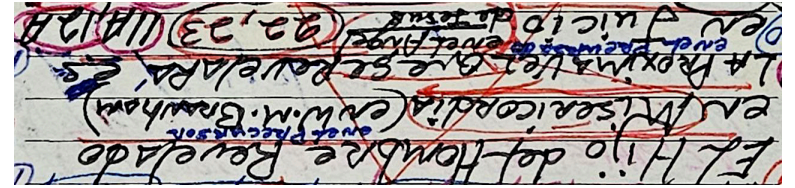 EL Hijo del Hombre Revelado
en el Precursor
en Misericordia (en W.M. Branham)
LA Proxima vez que se Revelara es
en el Precursado
en Juicio en el Angel de Jesus 22,23 11A 12A